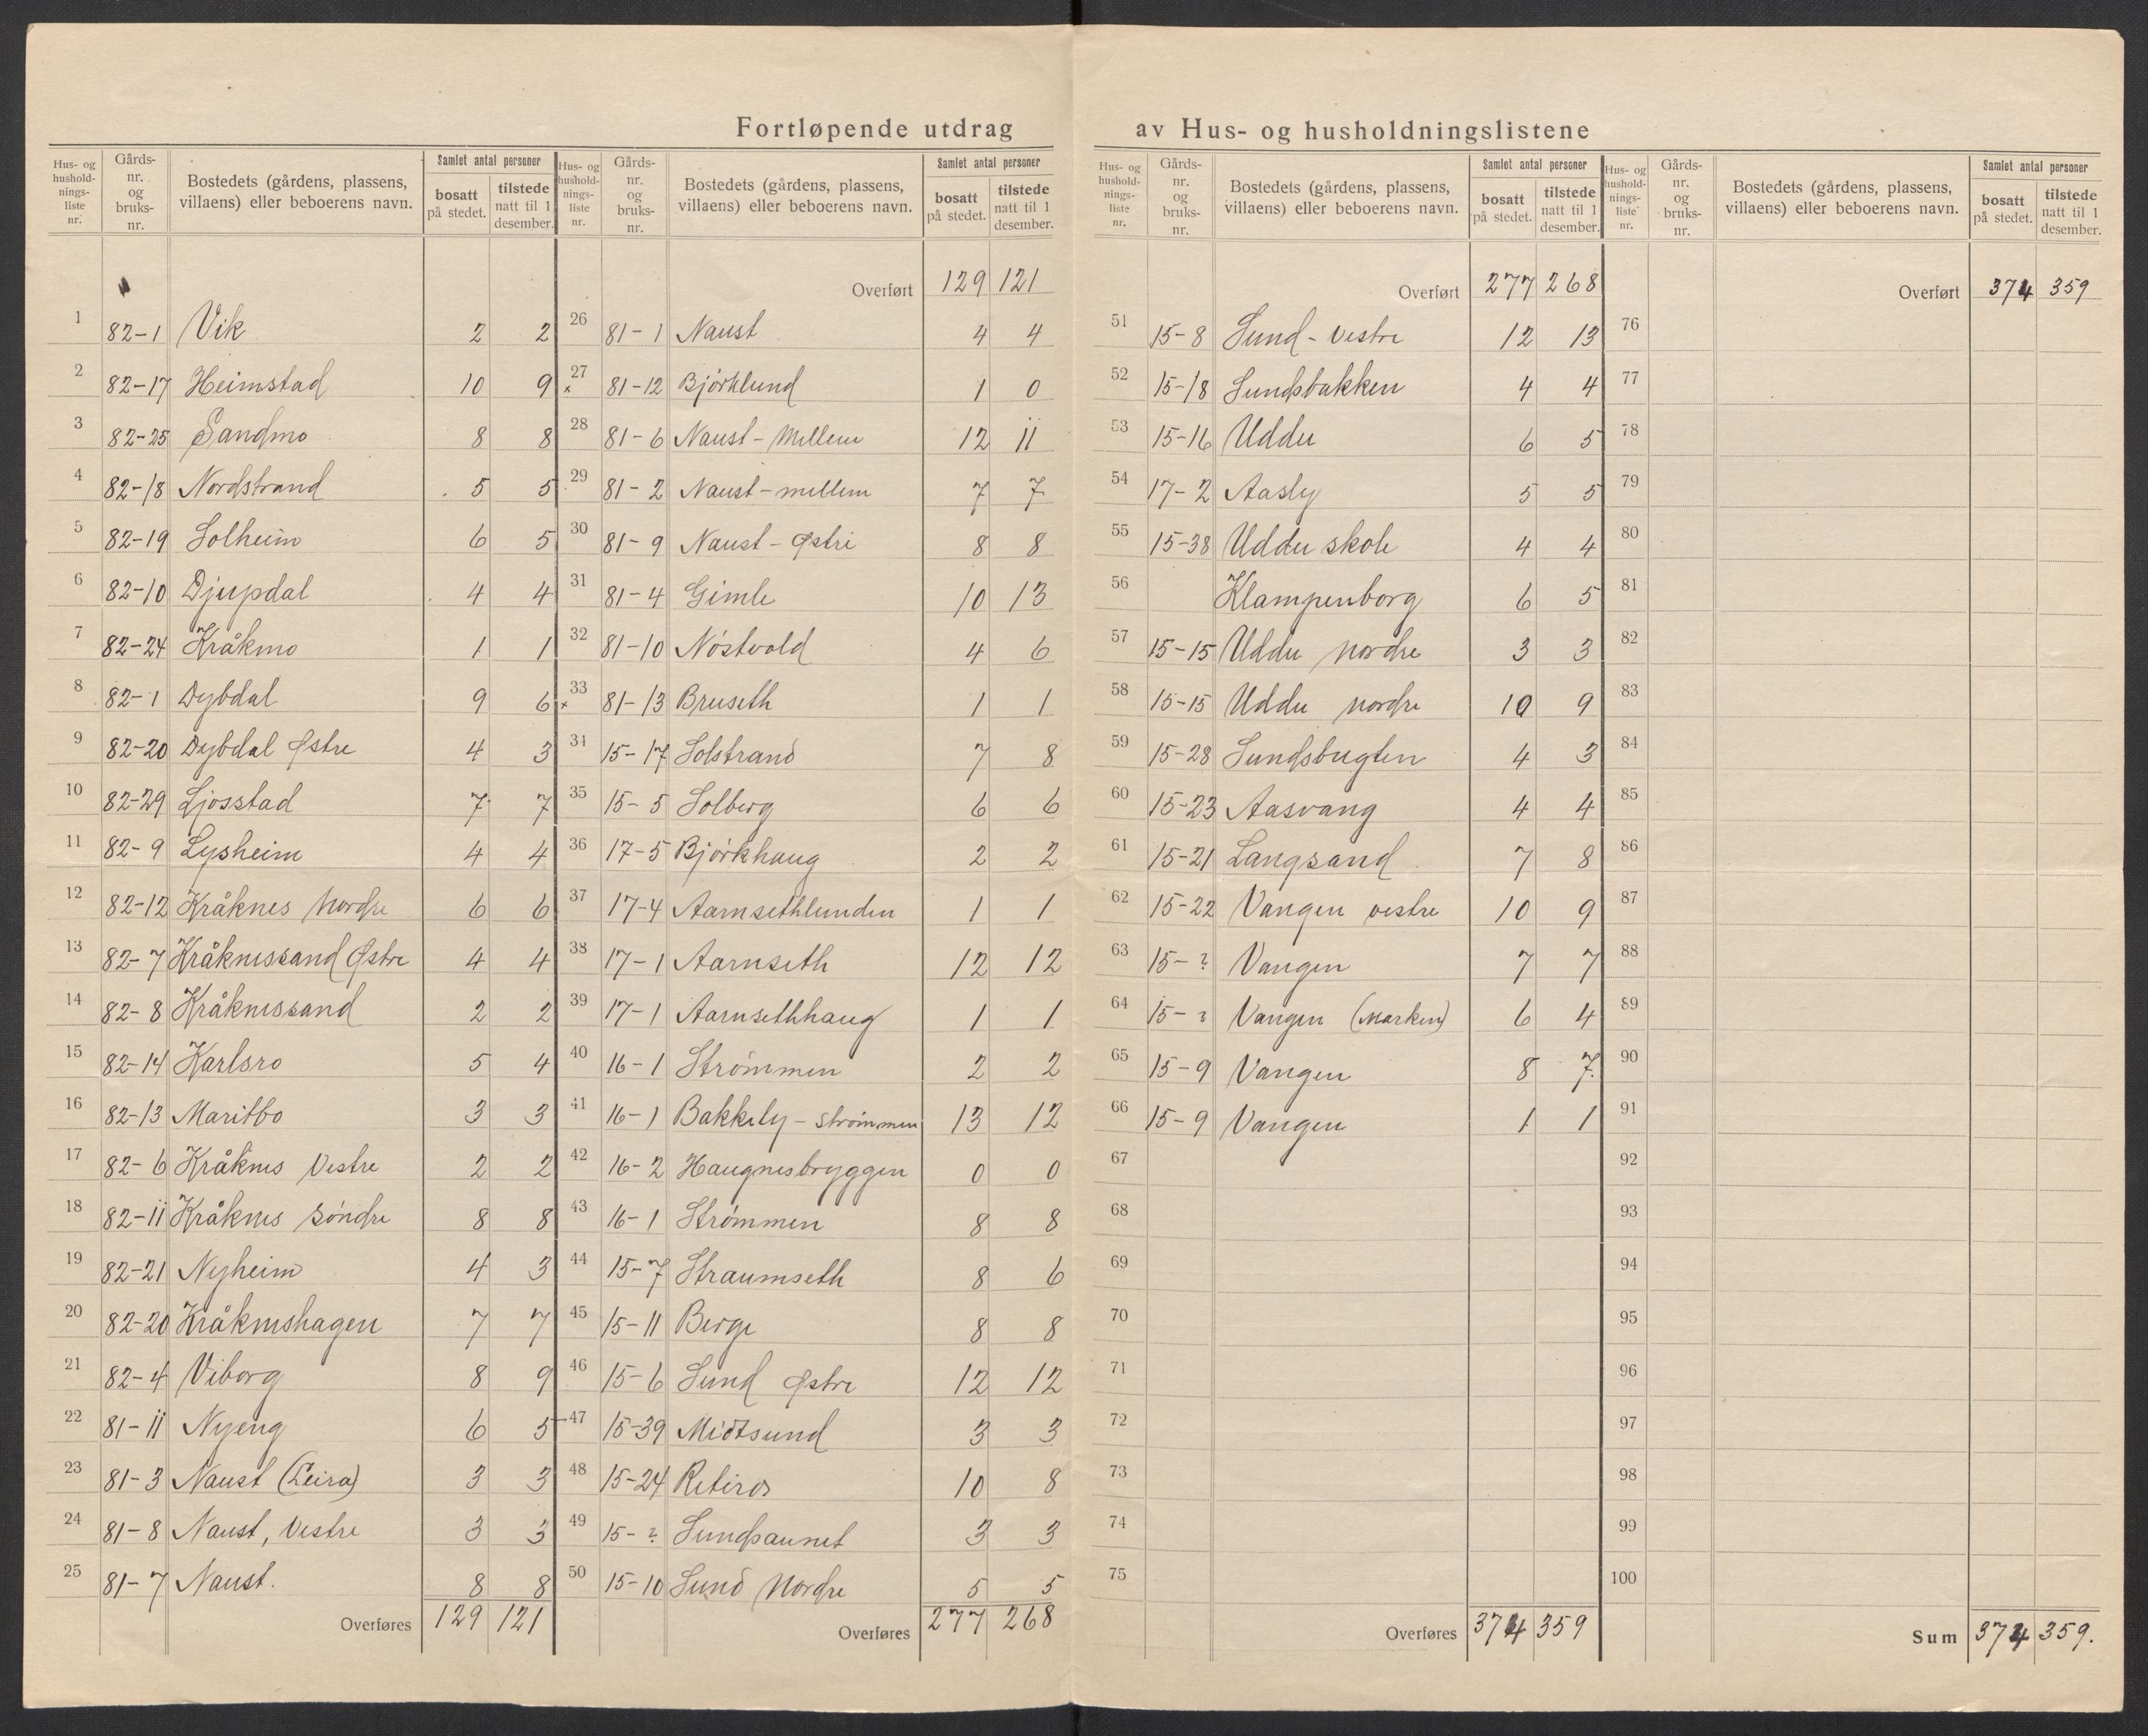 Fortløpende utdrag av Hus- og husholdningslistene
Hus- og hushold-nings-liste nr. Gårds-nr. og bruks-nr. Bostedets (gårdens, plassens, villaens) eller beboerens navn. Samlet antal personer bosatt på stedet. tilstede natt til 1 desember.
1 82-1 Vik 2 2
2 82-17 Heimstad 10 9
3 82-25 Sandmo 8 8
4 82-18 Nordstrand 5 5
5 82-19 Solheim 6 5
6 82-10 Djupdal 4 4
7 82-24 Kråkmo 1 1
8 82-1 Dybdal 9 6
9 82-20 Dybdal Østre 4 3
10 82-29 Ljosstad 7 7
11 82-9 Lysheim 4 4
12 82-12 Kråknes Nordre 6 6
13 82-7 Kråknessand Østre 4 4
14 82-8 Kråknessand 2 2
15 82-14 Karlsro 5 4
16 82-13 Maritbo 3 3
17 82-6 Kråknes Vestre 2 2
18 82-11 Kråknes Søndre 8 8
19 82-21 Nyheim 4 3
20 82-20 Kråkneshagen 7 7
21 82-4 Viborg 8 9
22 81-11 Nyeng 6 5
23 81-3 Naust (Leira) 3 3
24 81-8 Naust, Vestre 3 3
25 81-7 Naust. 8 8
Overføres 129 121
Hus- og hushold-nings-liste nr. Gårds-nr. og bruks-nr. Bostedets (gårdens, plassens, villaens) eller beboerens navn. Samlet antal personer bosatt på stedet. tilstede natt til 1 desember.
Overført 129 121
26 81-1 Naust 4 4
27 x 81-12 Bjørklund 1 0
28 81-6 Naust - Mellem 12 11
29 81-2 Naust - mellem 7 7
30 81-9 Naust - Østre 8 8
31 81-4 Gimle 10 13
32 81-10 Nöstvold 4 6
33 x 81-13 Bruseth 1 1
34 15-17 Solstrand 7 8
35 15-5 Solberg 6 6
36 17-5 Bjørkhaug 2 2
37 17-4 Aarnsethlunden 1 1
38 17-1 Aarnseth 12 12
39 17-1 Aarnsethhaug 1 1
40 16-1 Strømmen 2 2
41 16-1 Bakkely - Strømmen 13 12
42 16-2 Haugnesbryggen 0 0
43 16-1 Strømmen 8 8
44 15-7 Straumseth 8 6
45 15-11 Berge 8 8
46 15-6 Sund Østre 12 12
47 15-39 Midtsund 3 3
48 15-24 Retiros 10 8
49 15-? Sundsaunet 3 3
50 15-10 Sund Nordre 5 5
Overføres 277 268
Hus- og hushold-nings-liste nr. Gårds-nr. og bruks-nr. Bostedets (gårdens, plassens, villaens) eller beboerens navn. Samlet antal personer bosatt på stedet. tilstede natt til 1 desember.
Overført 277 268
51 15-8 Sund - Vestre 12 13
52 15-18 Sundsbakken 4 4
53 15-16 Uddu 6 5
54 17-2 Aasly 5 5
55 15-38 Uddu skole 4 4
56 Klampenborg 6 5
57 15-15 Uddu Nordre 3 3
58 15-15 Uddu Nordre 10 9
59 15-28 Sundsbugten 4 3
60 15-23 Aasvang 4 4
61 15-21 Langsand 7 8
62 15-22 Vangen vestre 10 9
63 15-? Vangen 7 7
64 15-? Vangen (Marken) 6 4
65 15-9 Vangen 8 7.
66 15-9 Vangen 1 1
67
68
69
70
71
72
73
74
75
Overføres 374 359
Hus- og hushold-nings-liste nr. Gårds-nr. og bruks-nr. Bostedets (gårdens, plassens, villaens) eller beboerens navn. Samlet antal personer bosatt på stedet. tilstede natt til 1 desember.
Overført 374 359
76
77
78
79
80
81
82
83
84
85
86
87
88
89
90
91
92
93
94
95
96
97
98
99
100
Sum 374 359.